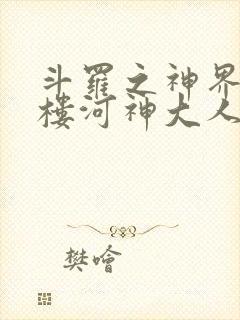 斗羅之神界
樓河神大人
樊噲